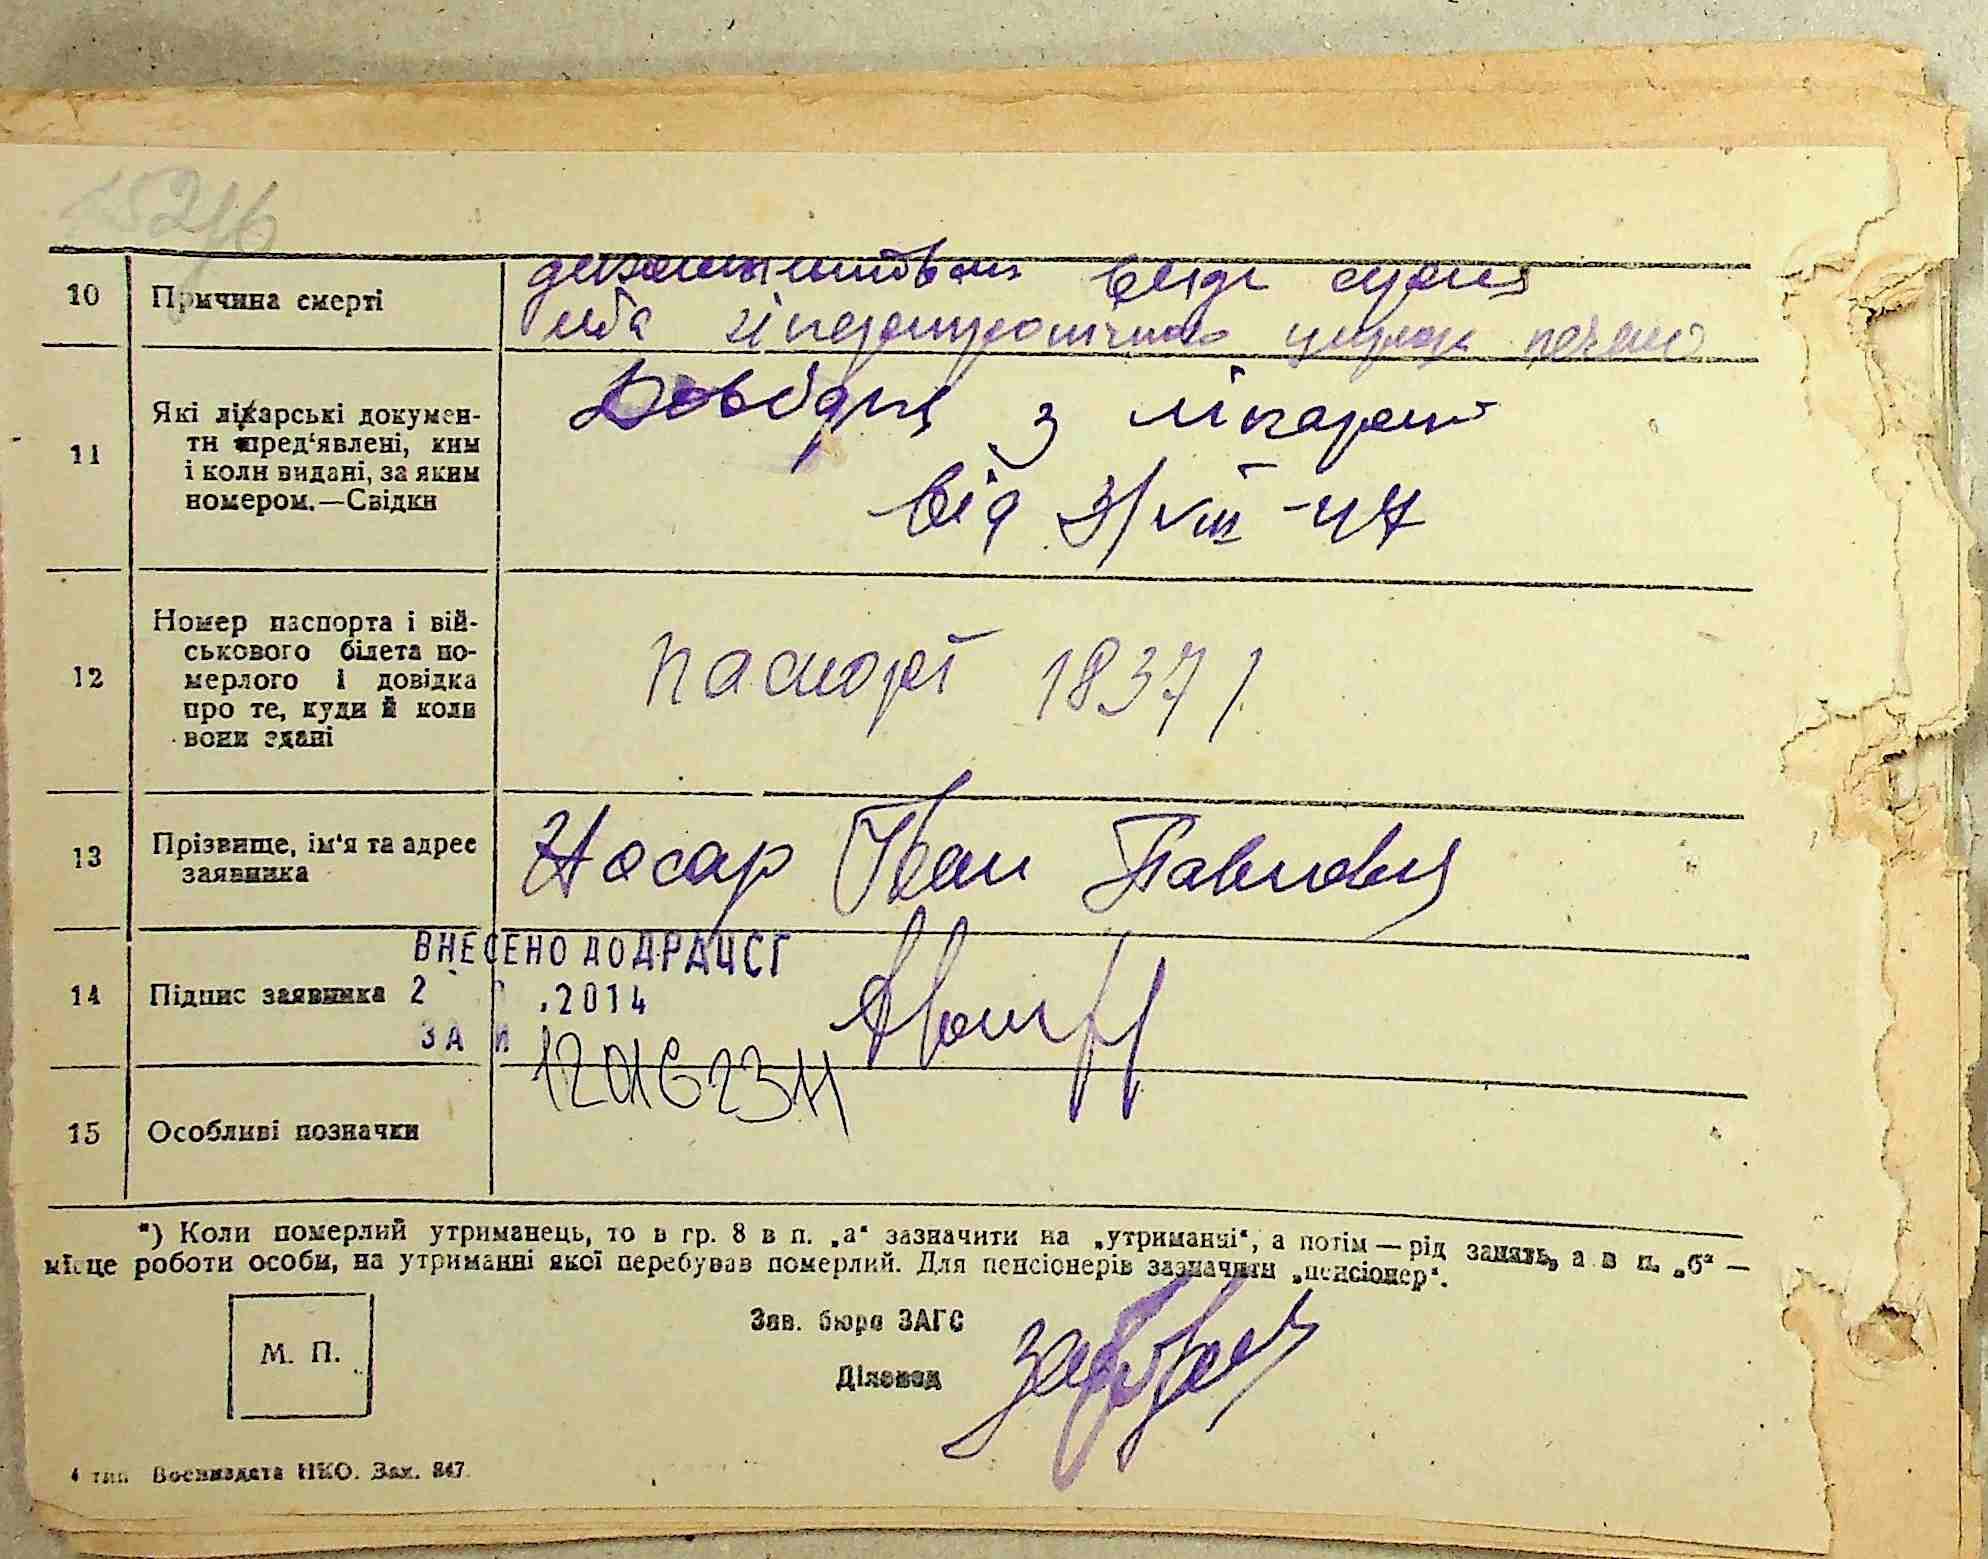 10 Причина смерті
гіпертрофічного цироза печені
11 Які лікарські докумен-
ти пред'явлені, ким
і коли видані, за яким
номером.—Свідки
Довідка з лікарні
від 3/VIII-47
12 Номер паспорта і вій-
ськового білета по-
мерлого і довідка
про те, куди й коли
вони здані
паспорт 1837
13 Прізвище, ім'я та адрес
заявника
Носар Іван Павлович
ВНЕСЕНО ДО ДРАЦСГ
14 Підпис заявника
2 .2014
ЗА №
15 Особливі позначки
*) Коли померлий утриманець, то в гр. 8 в п. „а“ зазначити на „утриманні“, а потім — рід занять, а в п. „б“ —
місце роботи особи, на утриманні якої перебував померлий. Для пенсіонерів зазначити „пенсіонер“.
Зав. бюро ЗАГС
М. П.
Діловод
4 тип Воениздата НКО. Зак. 847.